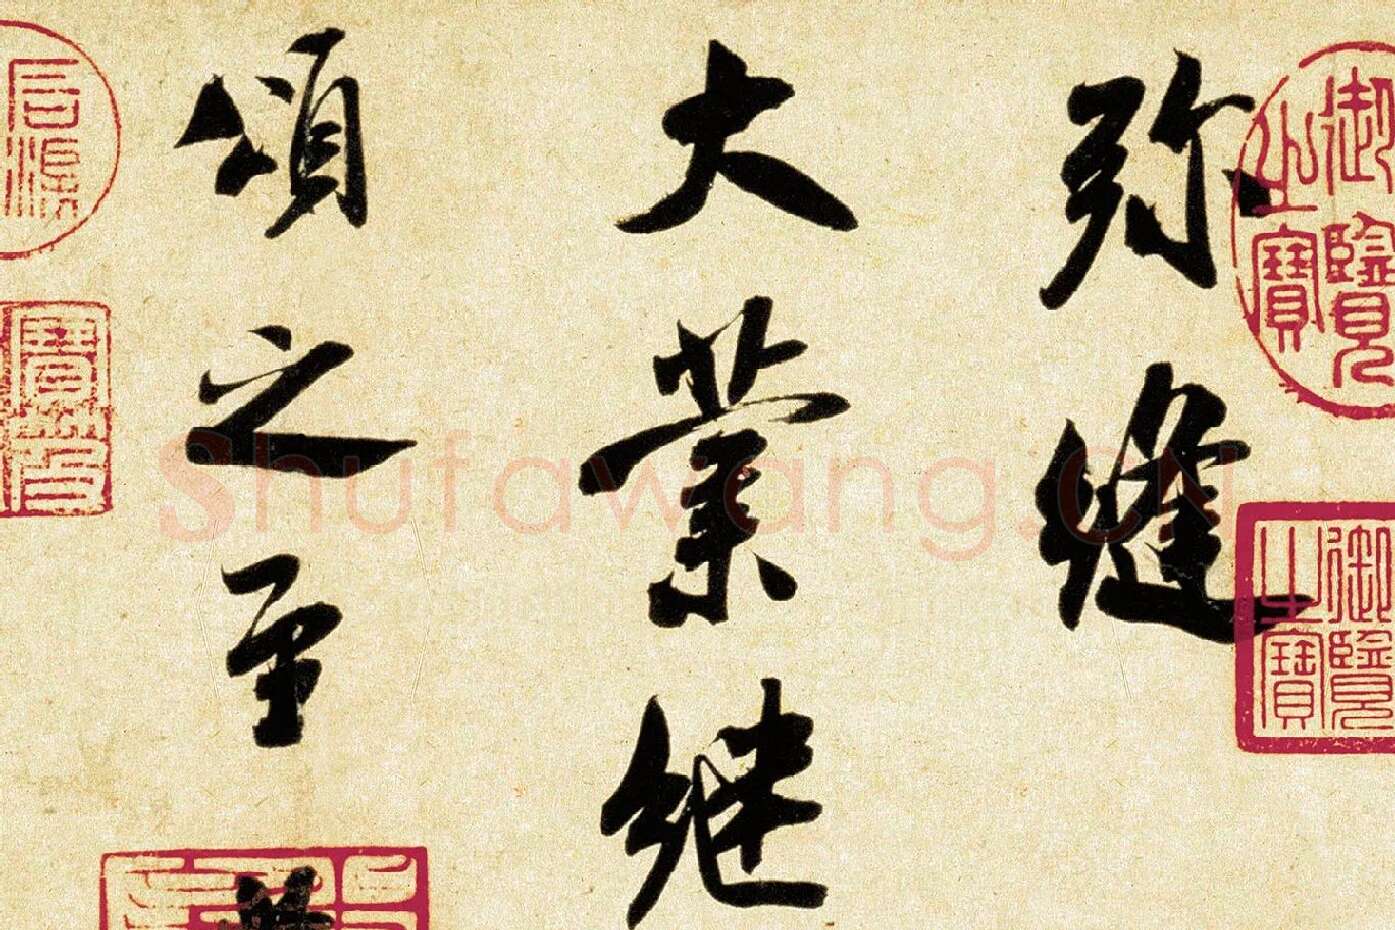 弥縫
大業継
頌之至
御覽之寶
御覽之寶
Shufawang.CN